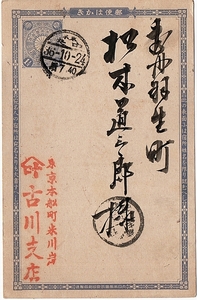 郵便はかき
36-10-24
羽生町
松本道三郎様
東京本船町米川岸
古川支店